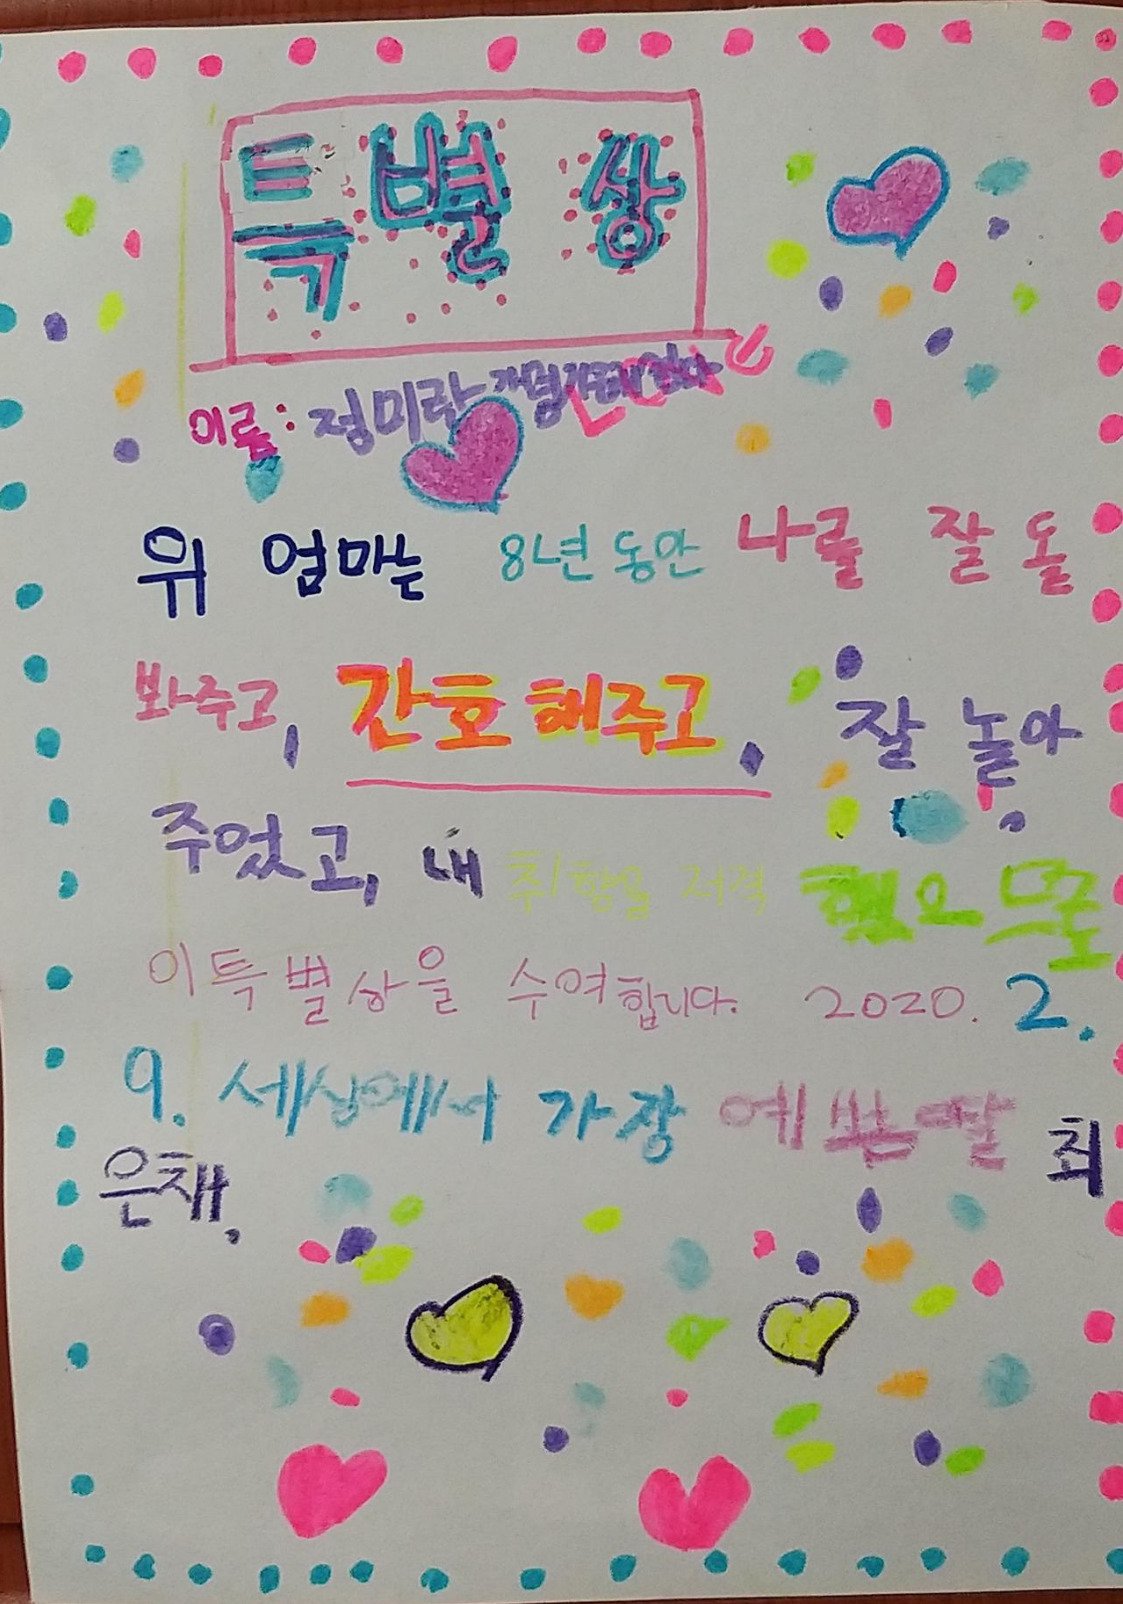 특별상
이름: 정미란
위 엄마는 8년 동안 나를 잘 돌
봐주고, 간호해주고, 잘 놀아
주었고, 내 취향을 저격 했으므로
이 특별상을 수여합니다. 2020. 2.
9. 세상에서 가장 예쁜딸 최
은채.